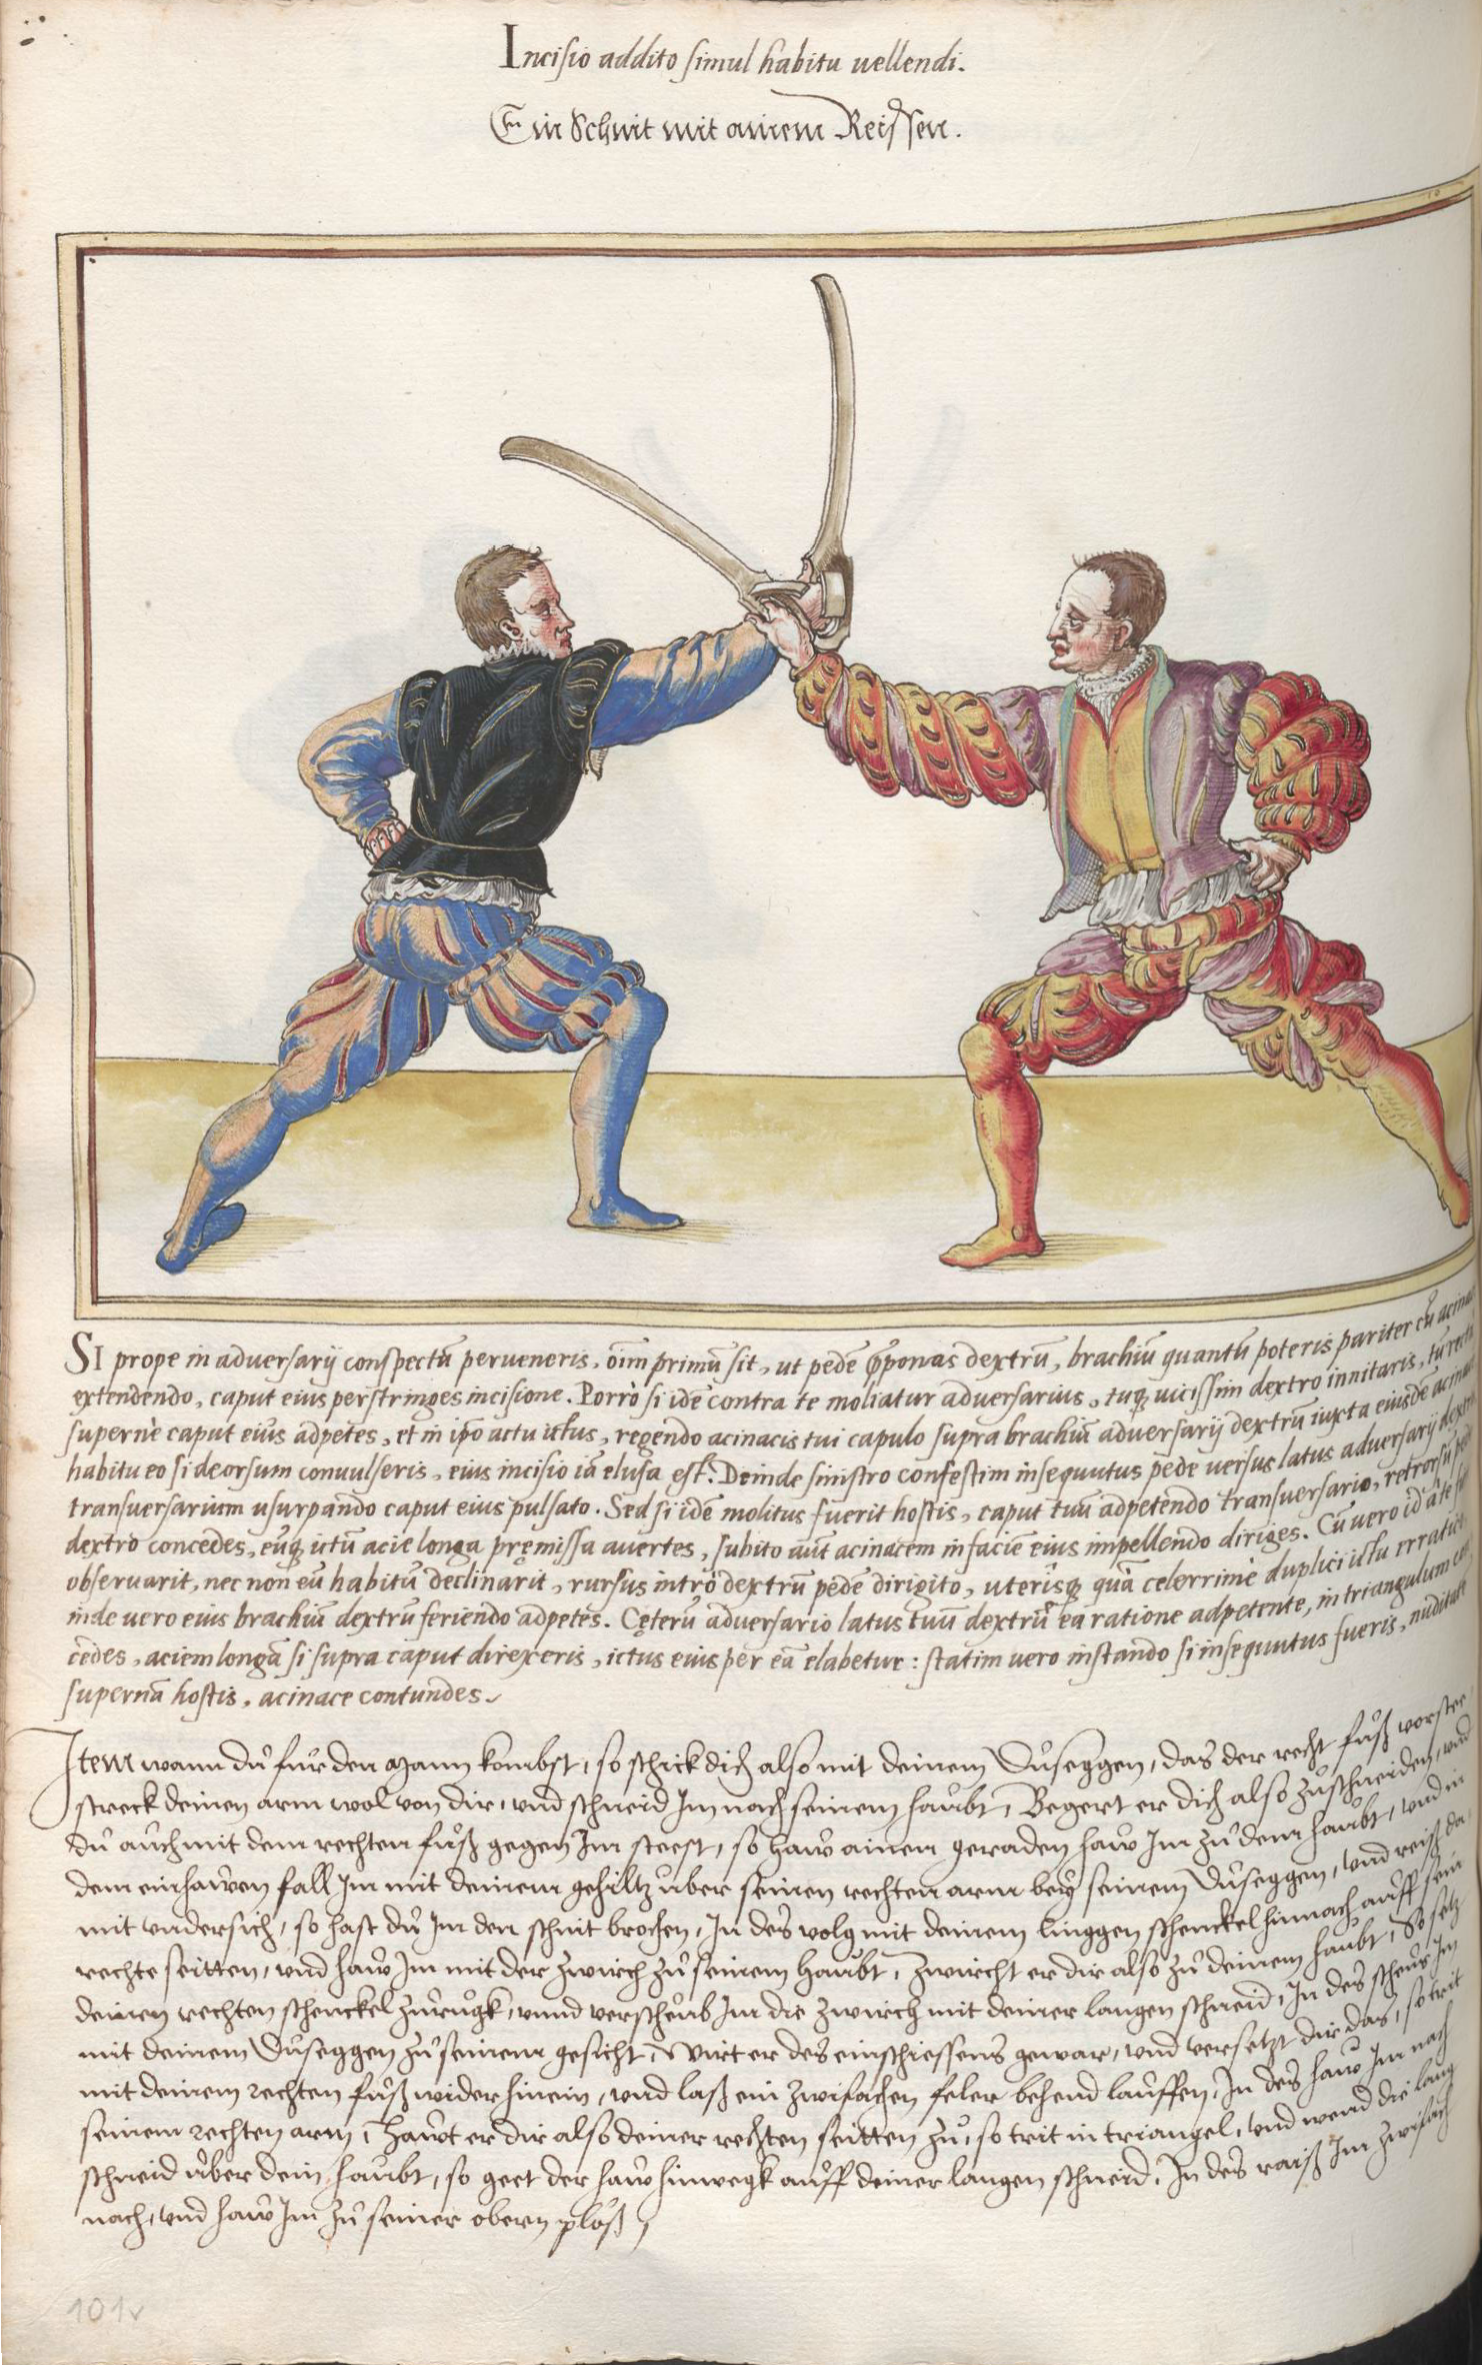 Incisio addito simul habitu uellendi.
Ein Schnit mit ainem Reissen.
SI prope in adversarij conspectũ perueneris, oĩm primũ sit, ut pedẽ ꝓponas dextrũ, brachiũ quantũ poteris pariter cũ
extendendo, caput eius perstringes incisione. Porrò si idẽ contra te moliatur adversarius, tuq; uicissim dextro innitaris, tũ
supernè caput eius adpetes, et in ipõ actu ictus, regendo acinacis tui capulo supra brachiũ adversarij dextrũ iuxta eiusdẽ
habitu eo si deorsum conuulseris, eius incisio iã elusa est. Deinde sinistro confestim insequutus pede uersus latus adversarij
transuersarium usurpando caput eius pulsato. Sed si idẽ molitus fuerit hostis, caput tuũ adpetendo transuersario, retrorsũ
dextro concedes, eũq; ictũ acie longa pręmissa auertes, subito aũt acinacem in faciẽ eius impellendo diriges. Cũ uero id
obseruarit, nec non eũ habitũ declinarit, rursus intrò dextrũ pedẽ dirigito, uterisq; quã celerrimè duplici ictu
inde uero eius brachiũ dextrũ feriendo adpetes. Cęterũ adversario latus tuũ dextrũ ea ratione adpetente, in triangulum
cedes, aciem longã si supra caput direxeris, ictus eius per eã elabetur: statim uero instando si insequutus fueris,
supernã hostis, acinace contundes.
Item wann dů fur den Mann kombst, so schick dich also mit deinem Důseggen, das der recht fůß
streck deinen arm wol von dir, und schneid Im nach seinem haubt, Begert er dich also zůschneiden, und
dů auch mit dem rechten fůß gegen Im steest, so haw ainen geraden haw Im zů dem haubt, und in
dem einhawen fall Im mit deinem gehiltz uber seinen rechten arm bey seinem Důseggen, und reiß da
mit undersich, so hast dů Im den schnit brochen, In des volg mit deinem linggen schenckel hinnach auff sein
rechte seitten, und haw Im mit der zwirch zů seinem Haubt, Zwircht er dir also zů deinem haubt, So setz
deinen rechten schenckel zurugk, unnd verscheub Im die zwirch mit deiner langen schneid, In des scheus Im
mit deinem Důseggen zů seinem gesicht, Wirt er des einschiessens gewar, und versetzt dir das, so trit
mit deinem rechten fůß wider hinein, und laß ein zwifachen feler behend lauffen, In des haw Im nach
seinem rechten arm, Hawt er dir also deiner rechten seitten zů, so trit in triangel, und wend die lang
schneid uber dein haubt, so geet der haw hinwegk auff deiner langen schneid, In des raiß Im zwifach
nach, und haw Im zů seiner obern ploß,
101v